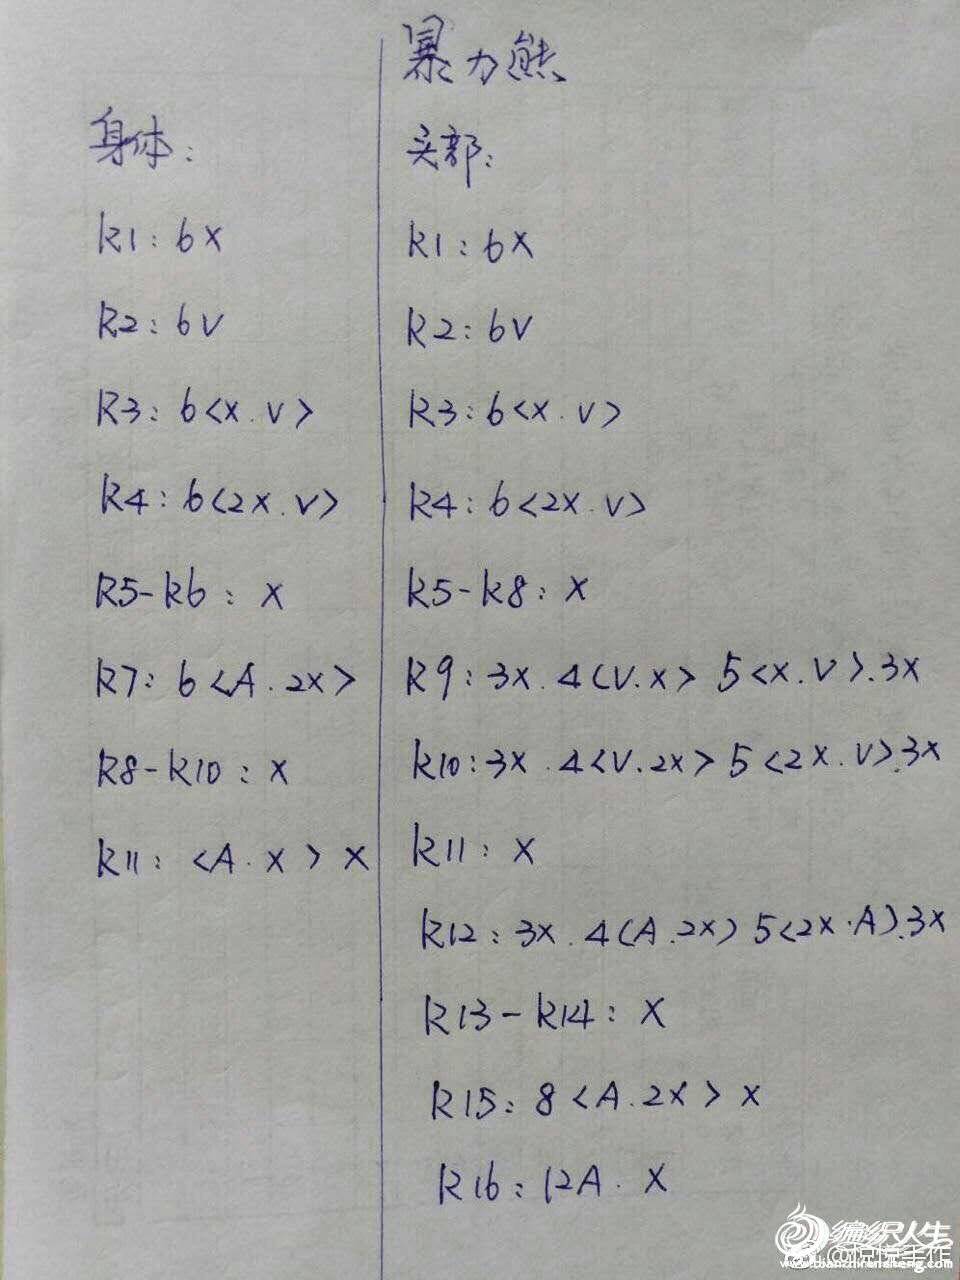 暴力熊
身体：
R1：6X
R2：6V
R3：6<X.V>
R4：6<2X.V>
R5-R6：X
R7：6<A.2X>
R8-R10：X
R11：<A.X>X
头部：
R1：6X
R2：6V
R3：6<X.V>
R4：6<2X.V>
R5-R8：X
R9：3X.4(V.X>5<X.V>.3X
R10：3X.4<V.2X>5<2X.V>.3X
R11：X
R12：3X.4(A.2X)5<2X.A).3X
R13-R14：X
R15：8<A.2X>X
R16：12A.X
编织人生
@悦悦手作
www.bianzhirensheng.com